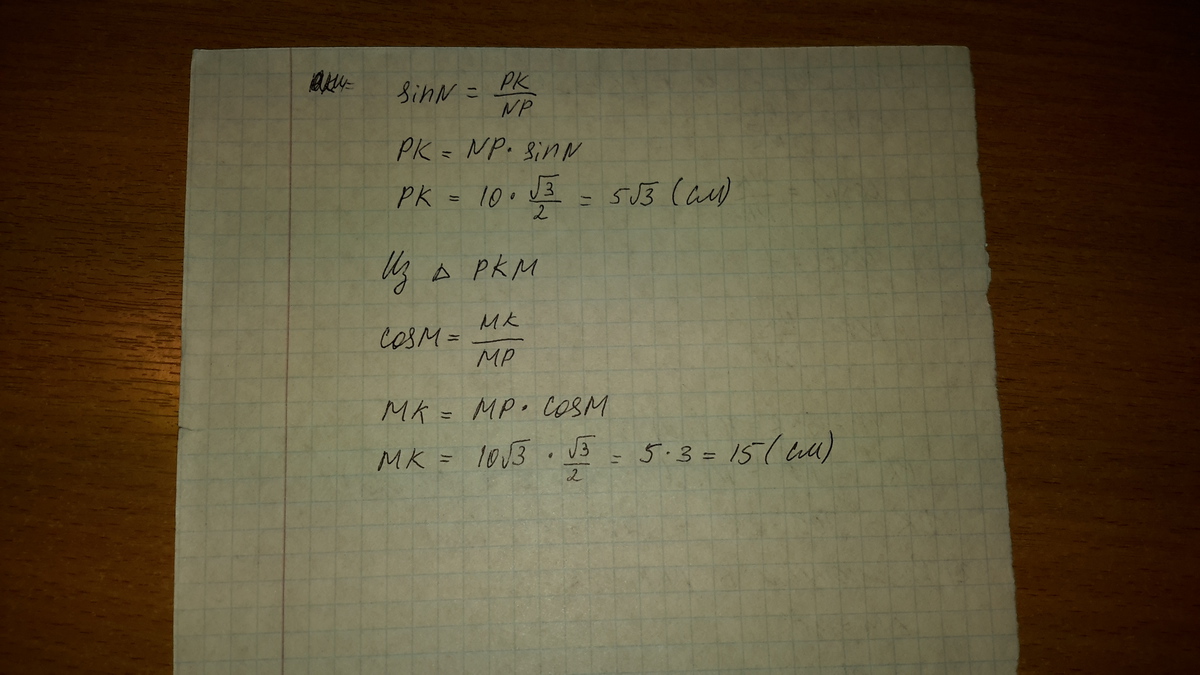 sinN = PK/NP
PK = NP · sinN
PK = 10 · √3/2 = 5√3 (см)
Из △ PKM
cosM = MK/MP
MK = MP · cosM
MK = 10√3 · √3/2 = 5 · 3 = 15 (см)